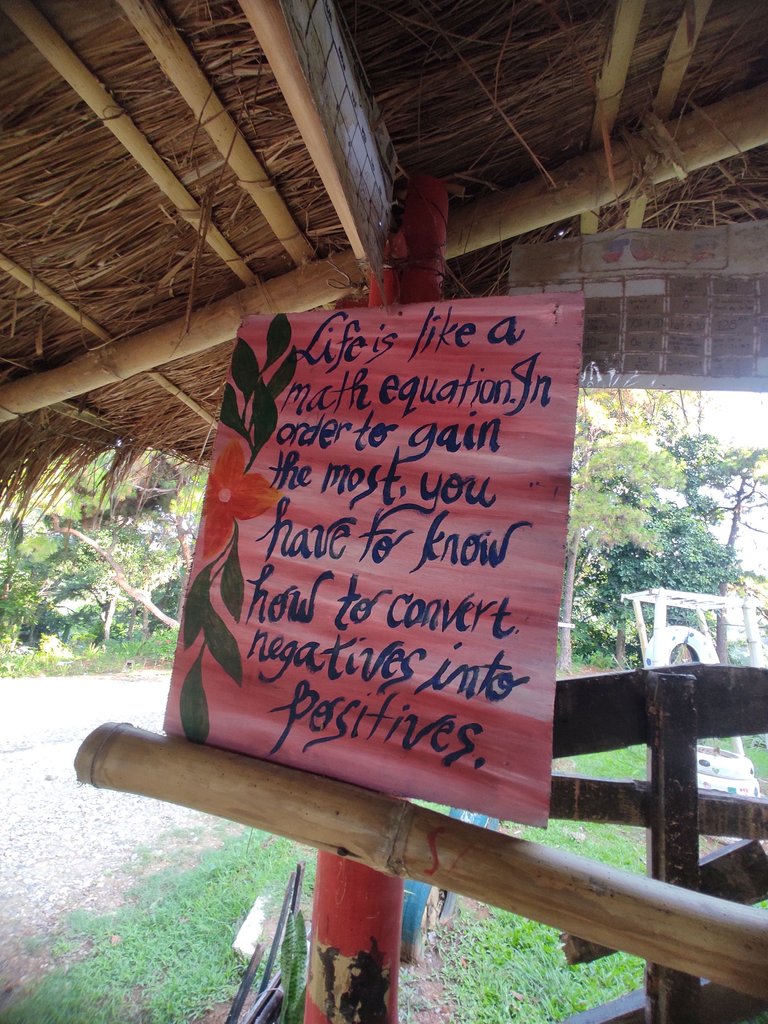 Life is like a
math equation. In
order to gain
the most, you
have to know
how to convert
negatives into
positives.